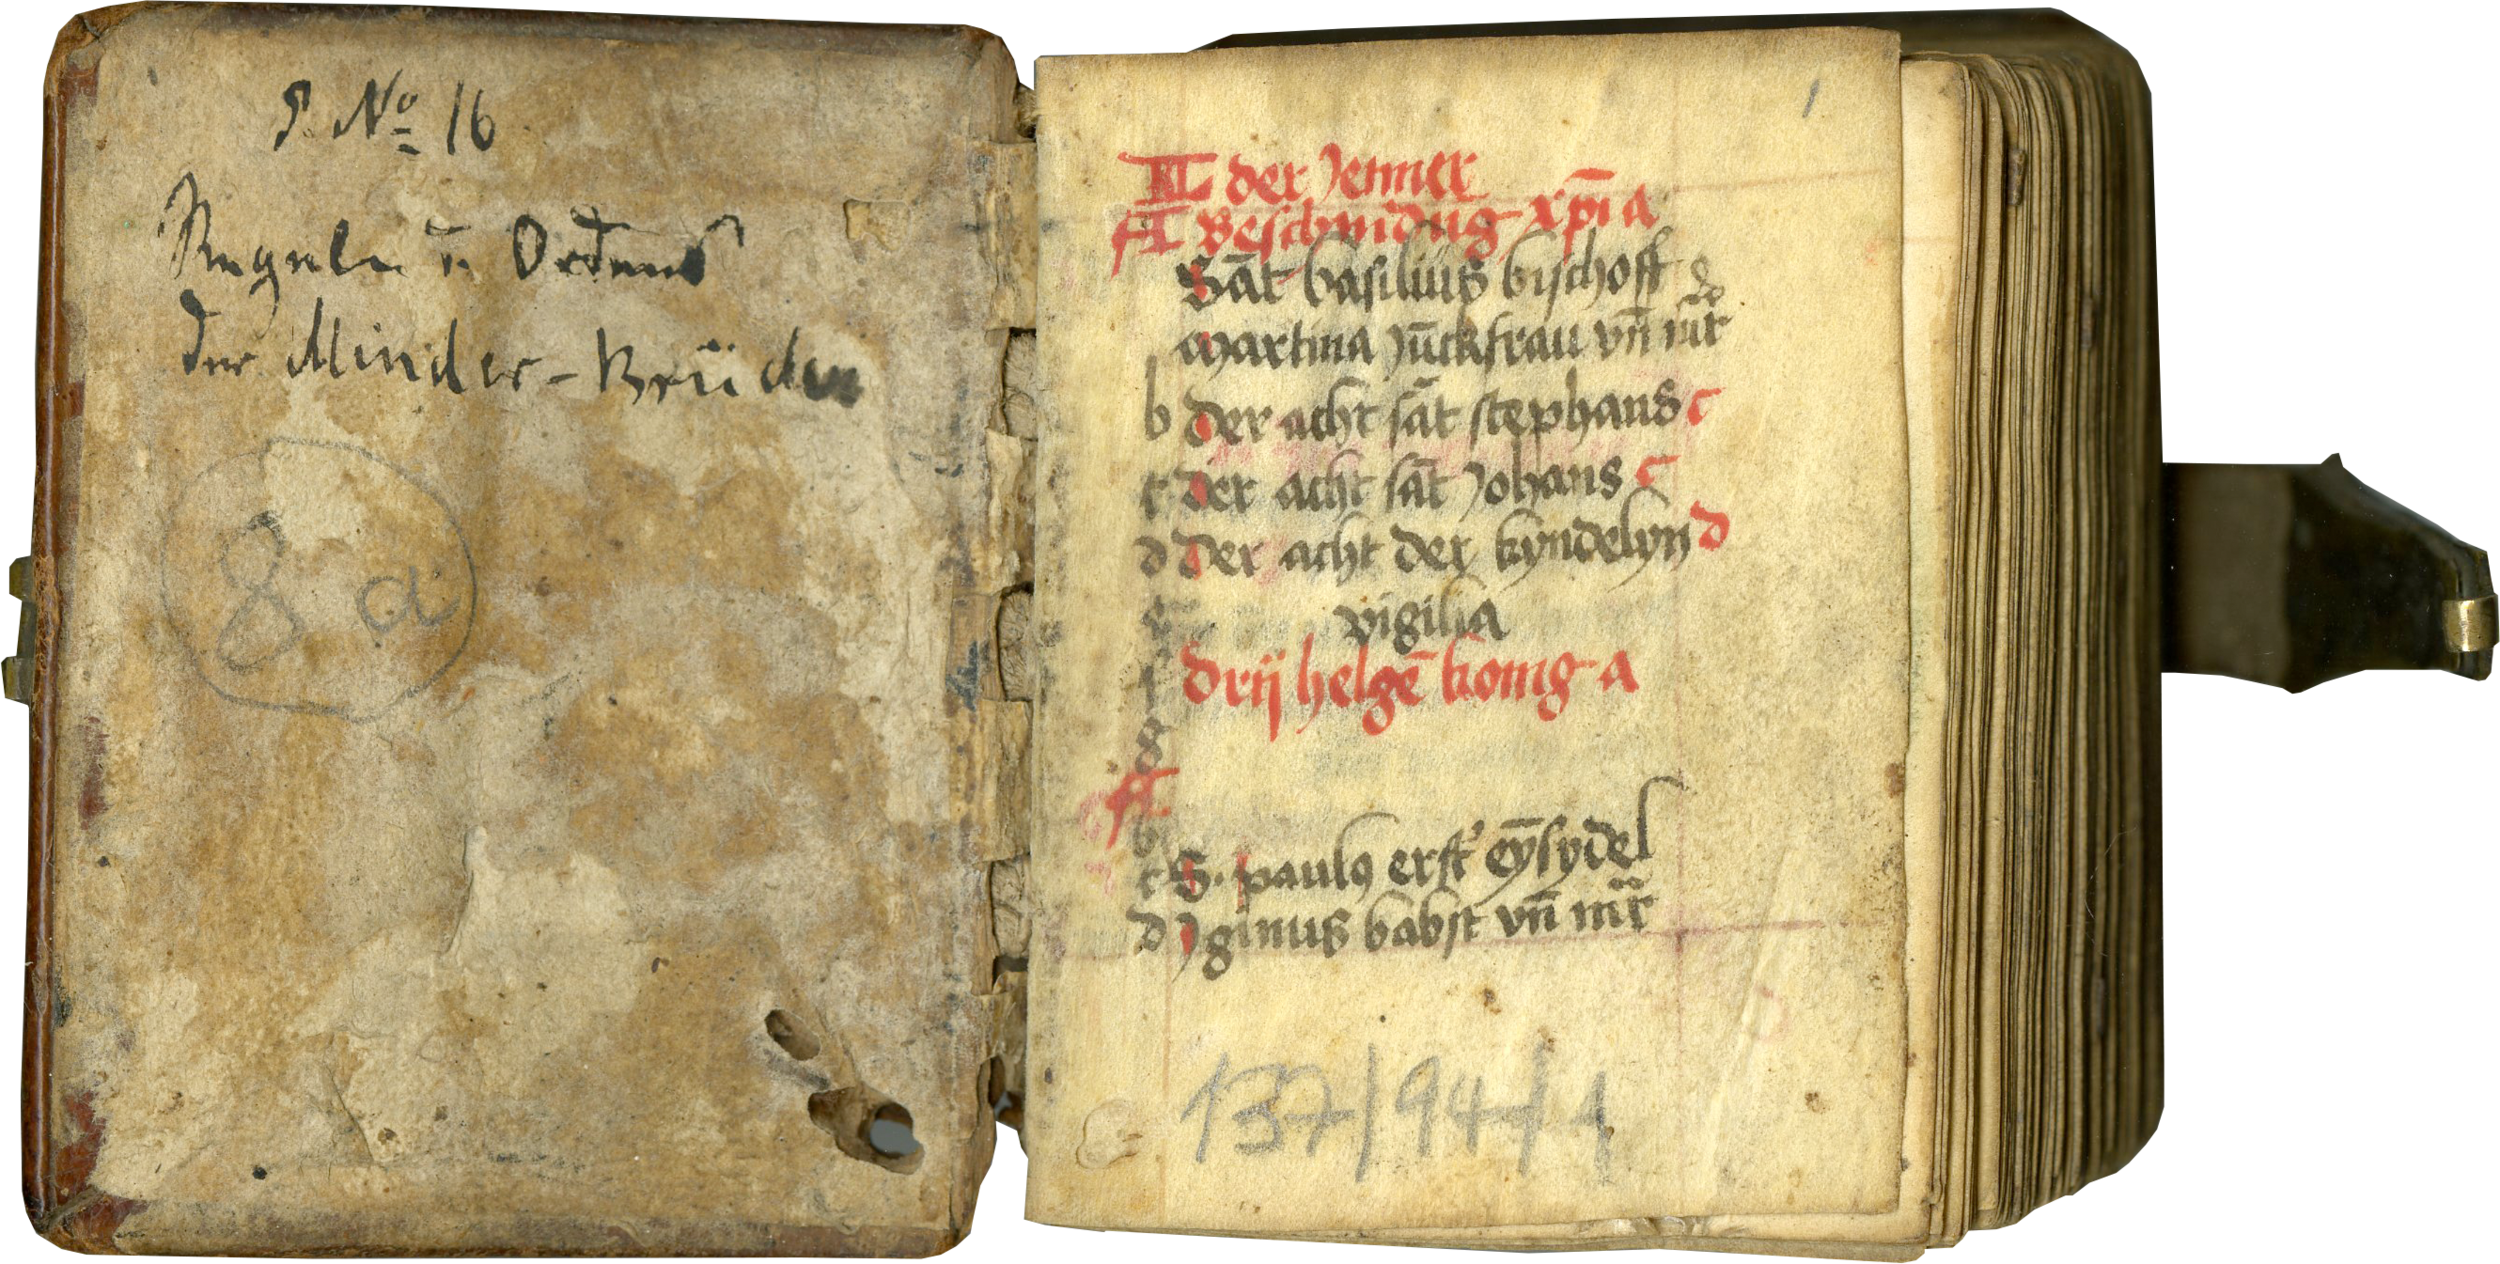 S. No 16
Regeln u. Ordnung
der Minder-Brüder
8 a
1
KL der Jenner
A Beschnidūg xp̄i a
Sāt basilius bischoff
martina Jūckfrau vn̄ mr̄
b der acht sāt stephans c
c der acht sāt Johans c
d der acht der kyndelyn d
e vigilia
f drij helgē konig a
g
A
b
c S. paulus erst eȳsydel
d Jginus babst vn̄ mr̄
137/94/1